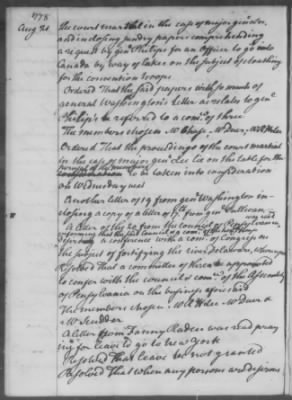 1778
Aug 21
the court martial in the case of major gen. Lee,
and inclosing sundry papers comprehending
a request by gen. Philips for an Officer to go into
Canada by way of lakes on the subject of cloathing
for the convention troops
Ordered That the said papers with so much of
general Washington's letter as relates to gen.
Philip's be referred to a com. of three
The members chosen Mr Chase, Mr Duer,
Ordered That the proceedings of the court martial
in the case of major gen. Lee lie on the table for the
perusal of the members
to be taken into consideration
on Wednesday next
Another letter of 19 from gen. Washington in-
closing a copy of a letter of 17th from gen. Sullivan,
A letter of the 20 from the council of Pennsylvania,
was read
informing that the said council
desirous a conference with a com. of Congress on
the subject of fortifying the river delaware, whereupon
Resolved That a committee of three be appointed
to confer with the council & com. of the Assembly
of Pensylvania on the business aforesaid
The members chosen Mr Duer &
Mr Scudder
A letter from was read pray
ing for leave to go to New York
Resolved That leave be not granted
Resolved That when any persons are desirous